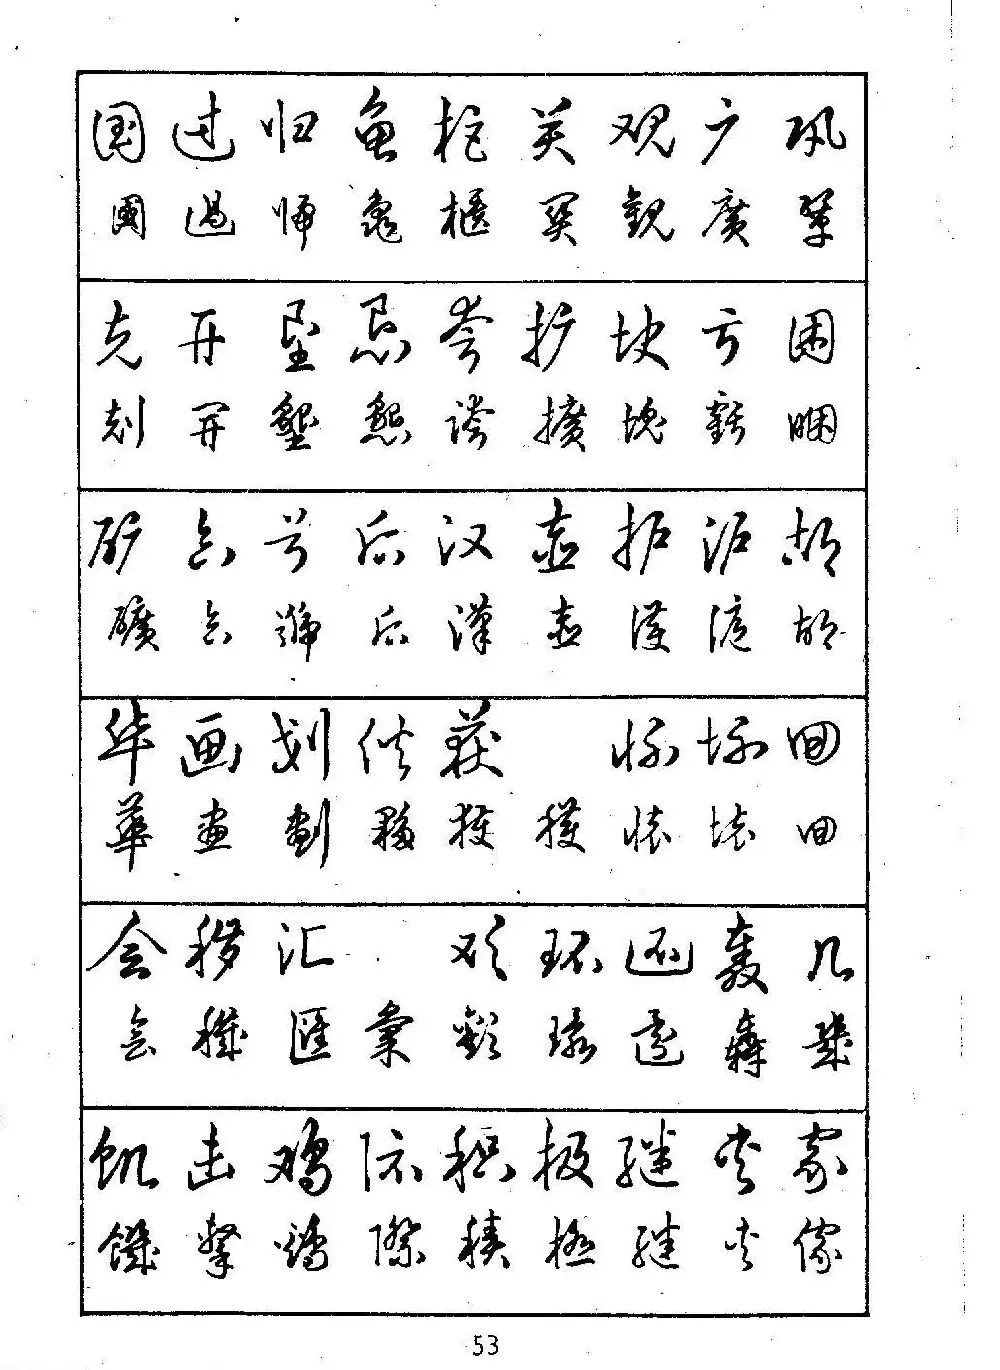 国 过 归 龟 柜 关 观 广 巩
國 過 歸 龜 櫃 関 觀 廣 鞏
克 开 垦 恳 夸 扩 块 亏 困
剋 開 墾 懇 誇 擴 塊 虧 睏
矿 合 号 后 汉 壶 护 沪 胡
礦 合 號 后 漢 壶 護 滬 胡
华 画 划 伙 获 怀 坏 回
華 畫 劃 夥 獲 穫 懷 壞 回
会 秽 汇 欢 环 还 轰 几
會 穢 匯 彙 歡 環 還 轟 幾
饥 击 鸡 际 积 极 继 夹 家
饑 擊 鷄 際 積 極 繼 夾 傢
53